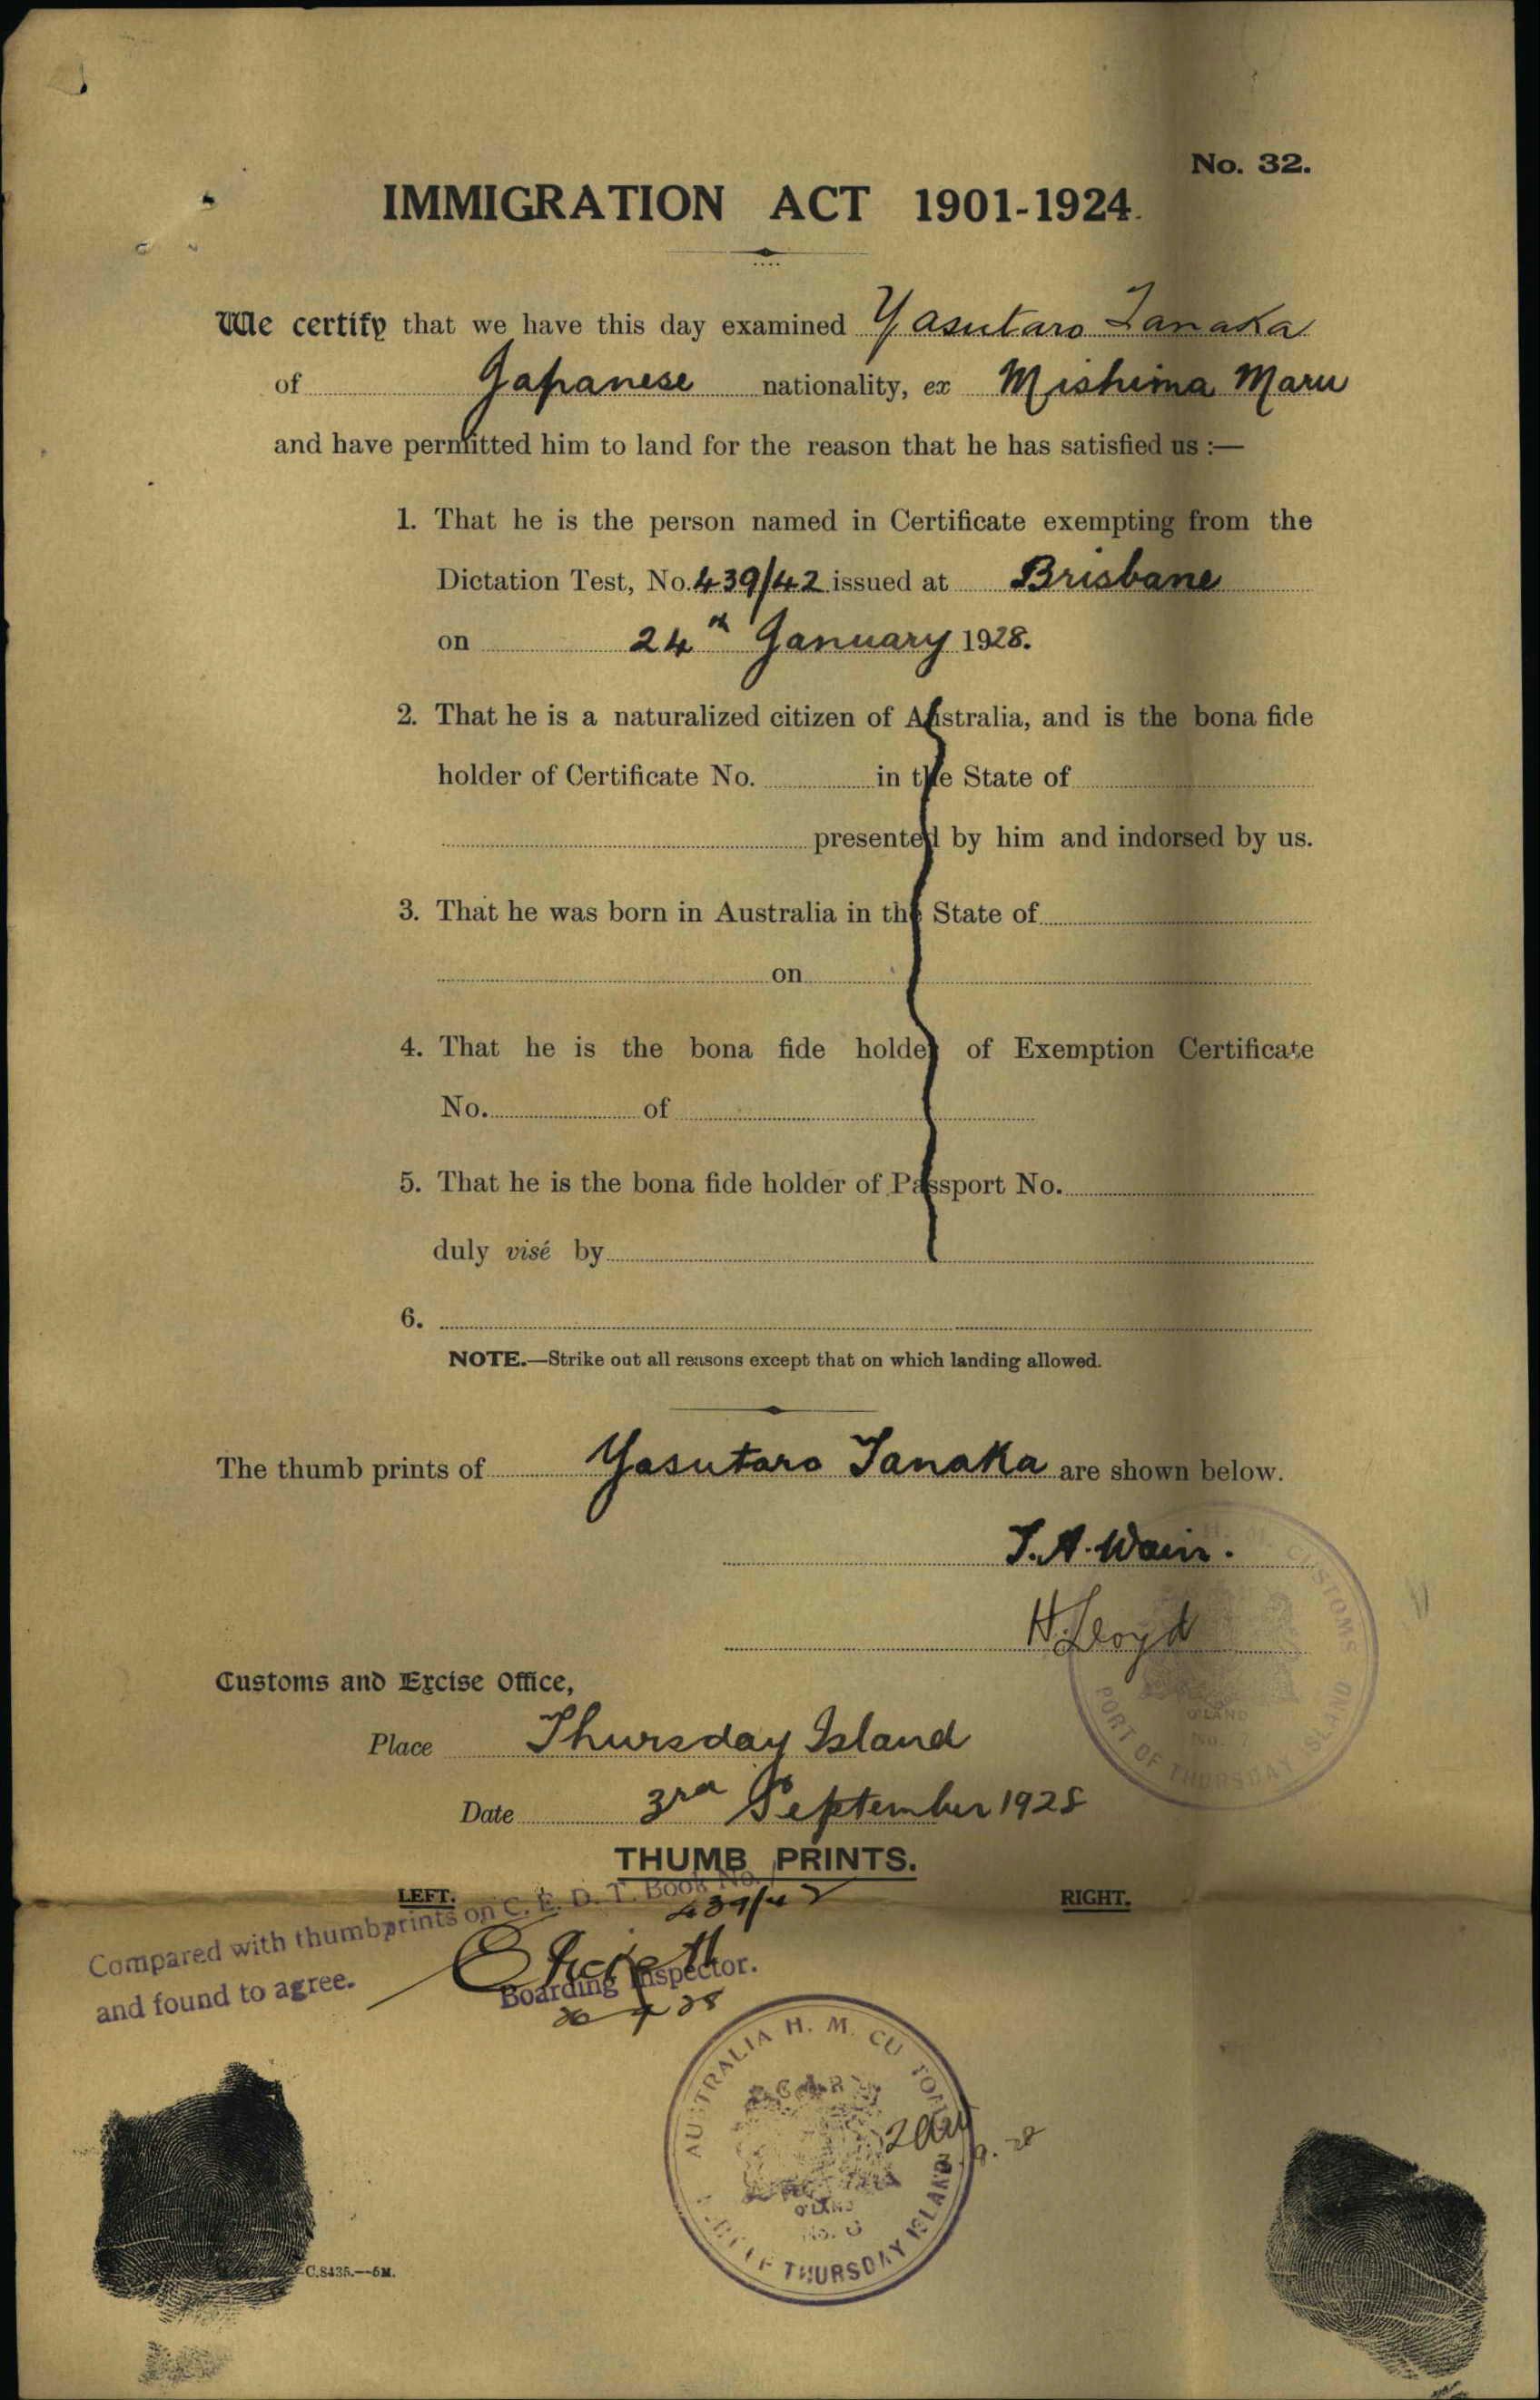 No. 32.
IMMIGRATION ACT 1901-1924.
We certify that we have this day examined Yasutaro Tanaka
of Japanese nationality, ex Mishima Maru
and have permitted him to land for the reason that he has satisfied us :—
1. That he is the person named in Certificate exempting from the
Dictation Test, No. 439/42 issued at Brisbane
on 24th January 1928.
2. That he is a naturalized citizen of Australia, and is the bona fide
holder of Certificate No. in the State of
presented by him and indorsed by us.
3. That he was born in Australia in the State of
on
4. That he is the bona fide holder of Exemption Certificate
No. of
5. That he is the bona fide holder of Passport No.
duly visé by
6.
NOTE.—Strike out all reasons except that on which landing allowed.
The thumb prints of Yasutaro Tanaka are shown below.
T. A.
H. Lloyd
H. M. CUSTOMS
Q'LAND
No.
PORT OF THURSDAY ISLAND
Customs and Excise Office,
Place Thursday Island
Date 3rd September 1928
THUMB PRINTS.
LEFT.
RIGHT.
Compared with thumbprints on C. E. D. T. Book No. 439/42
and found to agree.
Boarding Inspector.
28
AUSTRALIA H. M. CUSTOMS
Q'LAND
No.
THURSDAY ISLAND
C.8435.—5M.